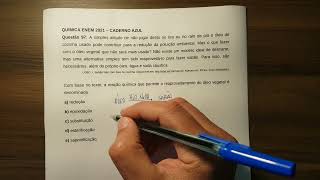 QUÍMICA ENEM 2021 – CADERNO AZUL
Questão 97. A simples atitude de não jogar direto no lixo ou no ralo da pia o óleo de
cozinha usado pode contribuir para a redução da poluição ambiental. Mas o que fazer
com o óleo vegetal que não será mais usado? Não existe um modelo ideal de descarte,
mas uma alternativa simples tem sido reaproveitá-lo para fazer sabão. Para isso, são
necessários, além do próprio óleo, água e soda cáustica.
Com base no texto, a reação química que permite o reaproveitamento do óleo vegetal é
denominada
a) redução.
b) epoxidação.
c) substituição.
d) esterificação.
e) saponificação.